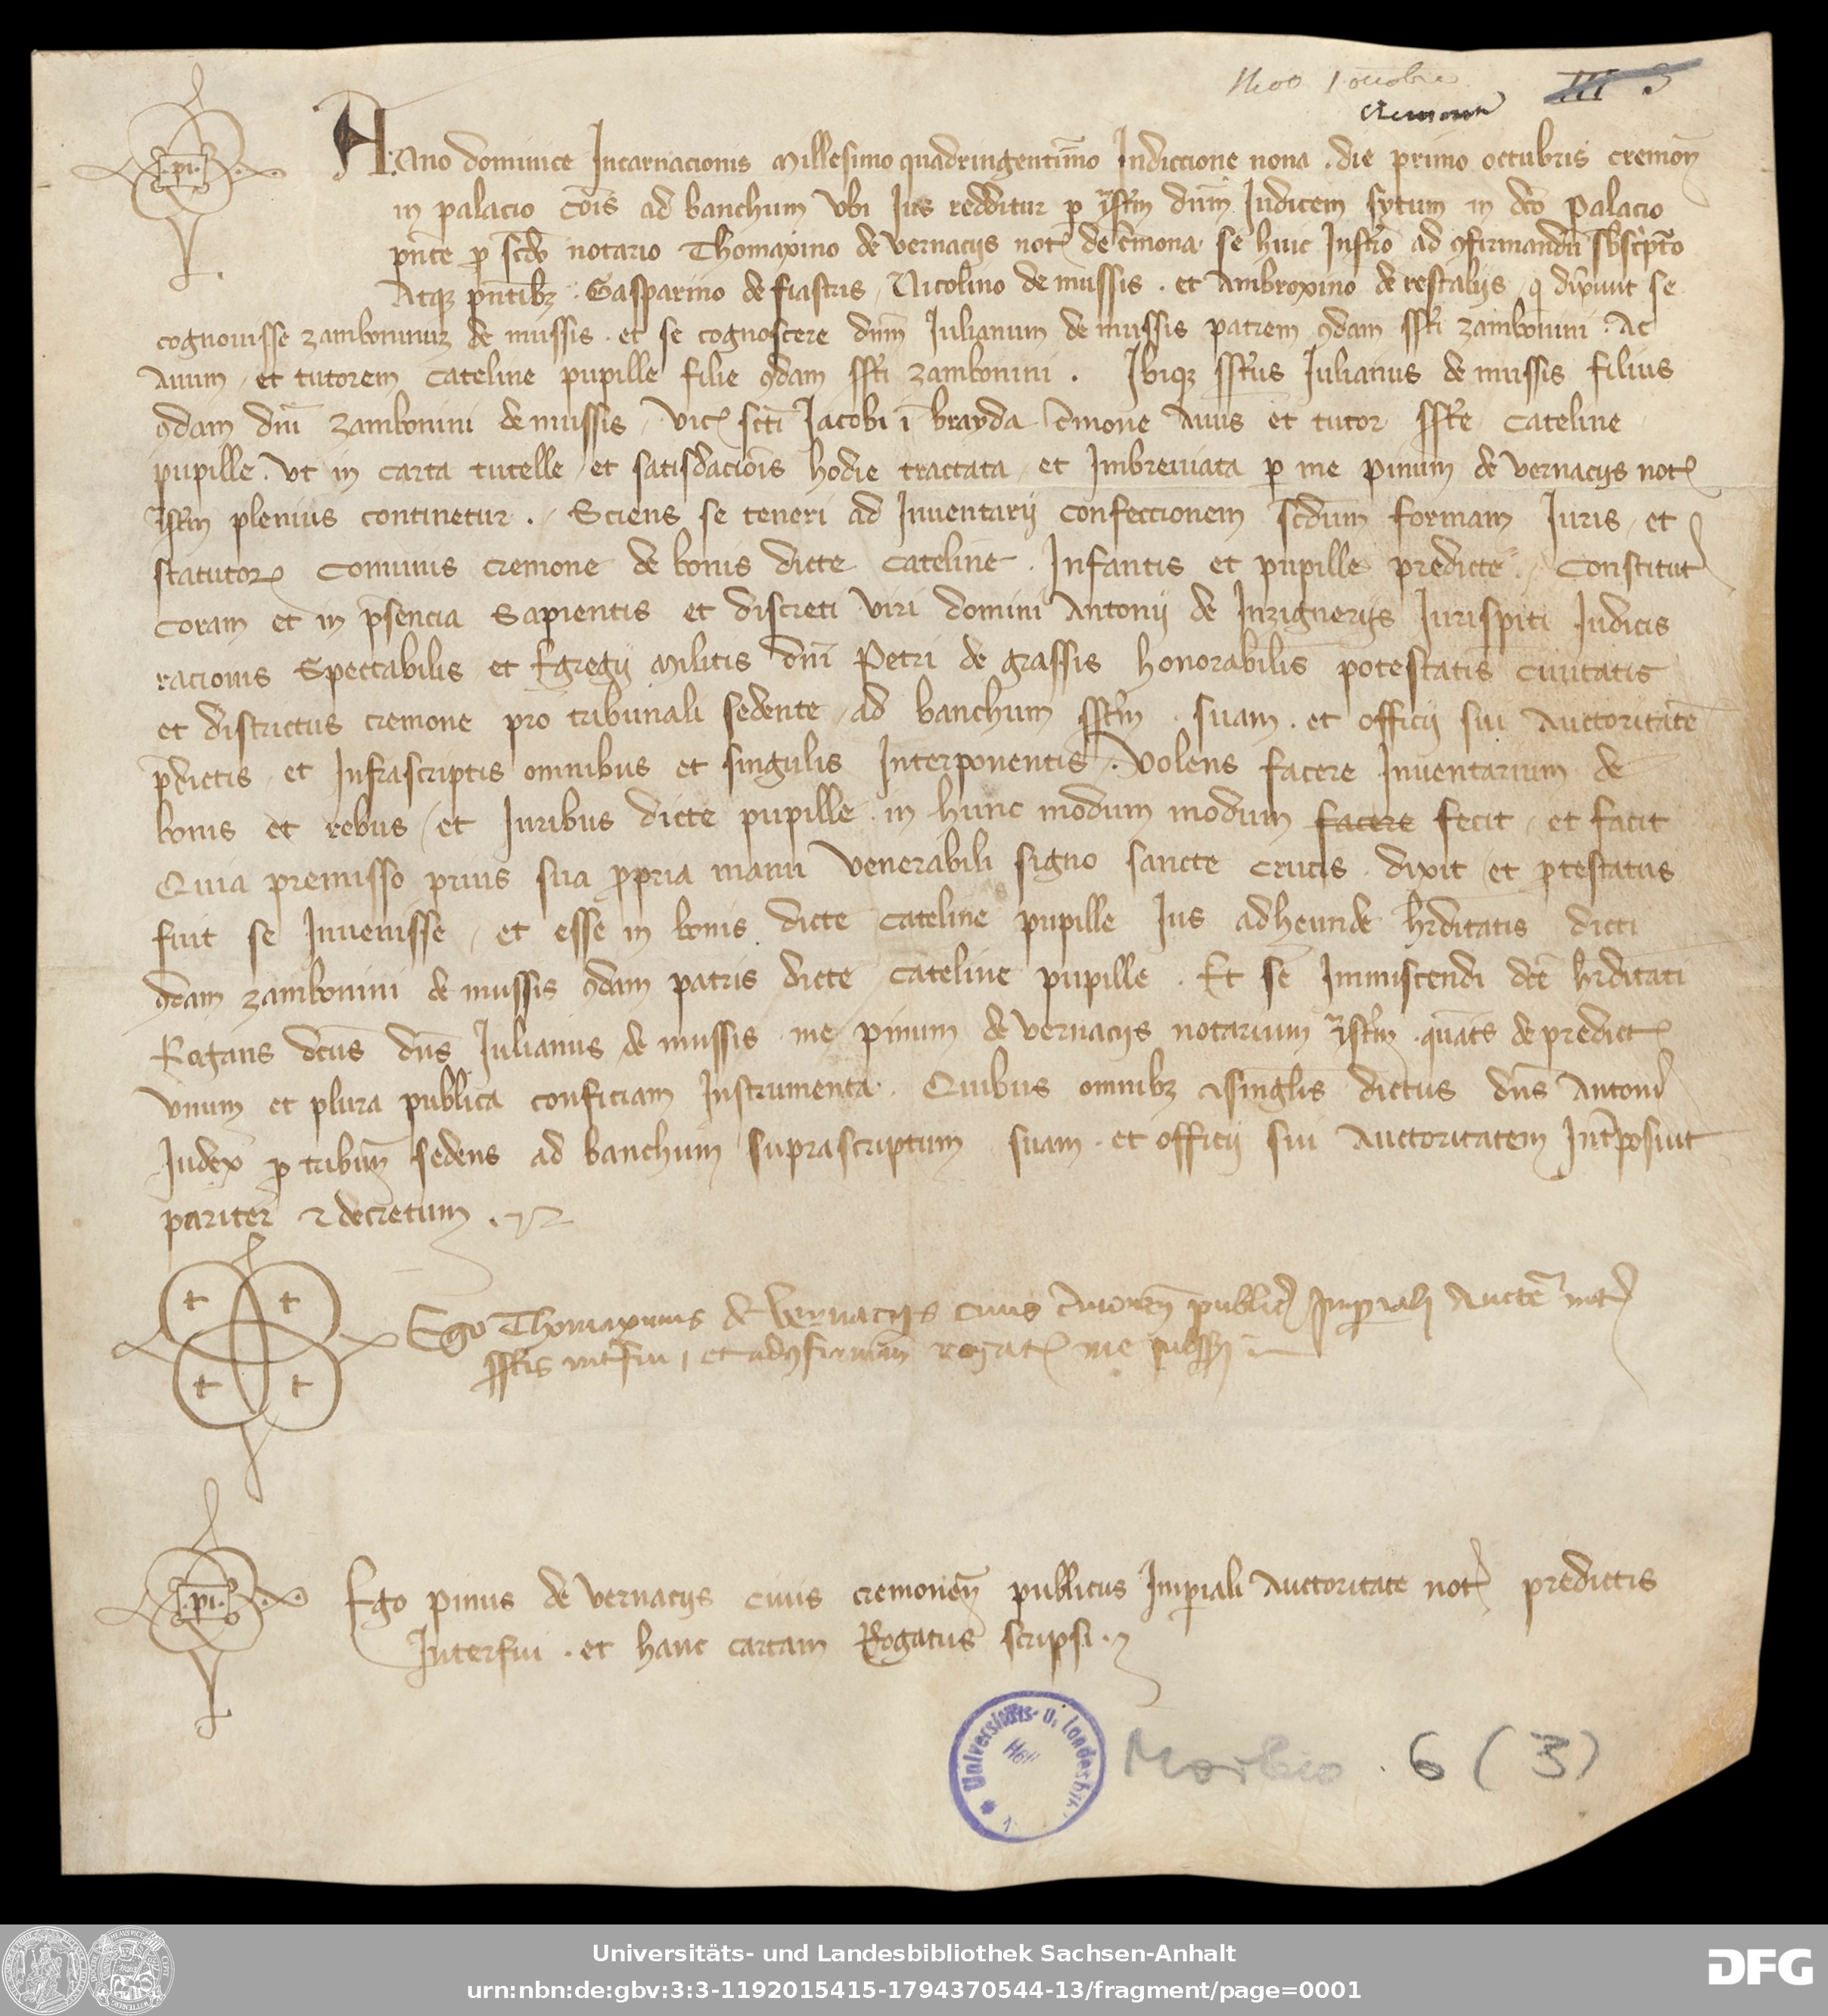 1400 1 octobre
Cremona
III 3
Ano dominice Incarnacionis Millesimo quadringentimo Indiccione nona . die primo octubris cremon
in palacio cois ad banchum Vbi Jus redditur p istm dum Judicem sytum in dco Palacio
pnte p scdo notario Thomaxino de vernacijs not de cmona se huic Instro ad gfirmandu sbscpto
Atq pntibz . Gasparino de fiastris , Nicolino de mussis . et Ambroxino de restalijs , q dixunt se
cognouisse zamboninuz de mussis . et se cognoscere dnm Julianum de mussis patrem qdam ssti zambonini . Ac
Auum , et tutorem Cateline pupille filie qdam ssti zambonini . Ibiq sstus Julianus de mussis filius
qdam dni zambonini de mussis , vic scti Jacobi i brayda cmone Auus et tutor sste Cateline
pupille . Vt in carta tutelle , et satisdacois hodie tractata , et Imbreuiata p me pinum de vernacijs not
istm plenius continetur . , Sciens se teneri ad Inuentarij confeccionem scdum formam Juris , et
statutor Comunis cremone de bonis dicte Cateline . Infantis et pupille predicte . , Constitut
Coram et in psencia Sapientis et discreti Viri domini Antonij de Inzignerijs Jurispiti Judicis
racionis Spectabilis et Egregij Militis dni Petri de grassis honorabilis potestatis Ciuitatis
et districtus cremone pro tribunali sedente , ad banchum sstm . suam . et officij sui Auctoritate
pdictis , et Infrascriptis omnibus et singulis Interponentis . Volens facere Inuentarium de
bonis et rebus , et Juribus dicte pupille . in hunc modum modum facere fecit , et facit
Quia premisso prius sua ppria manu Venerabili signo sancte Crucis . dixit et ptestatus
fuit se Inuenisse , et esse in bonis dicte Cateline pupille Jus adheunde hrditatis dicti
qdam zambonini de mussis qdam patris dicte Cateline pupille . Et se Immiscendi dce hrditati
Rogans dcus dns Julianus de mussis . me pinum de vernacijs notarium istm . quats de predict
Vnum et plura publica conficiam Instrumenta . Quibus omnibz & singlis dictus dns Antoni
Judex p tribun sedens ad banchum suprascriptum suam . et officij sui Auctoritatem Intposuit
pariter & decretum .
Ego Thomaxinus de Vernacijs Ciuis cmonen public Imperiali Aucte not
sstis intfui , et ad gfirman rogat me subssi
.pi.
Ego pinus de vernacijs Ciuis cremonen publicus Imperiali Auctoritate not predictis
Interfui . et hanc cartam Rogatus scripsi .
Universitäts- u. Landesbib.
Morbio . 6 (3)
Universitäts- und Landesbibliothek Sachsen-Anhalt
urn:nbn:de:gbv:3:3-1192015415-1794370544-13/fragment/page=0001
DFG